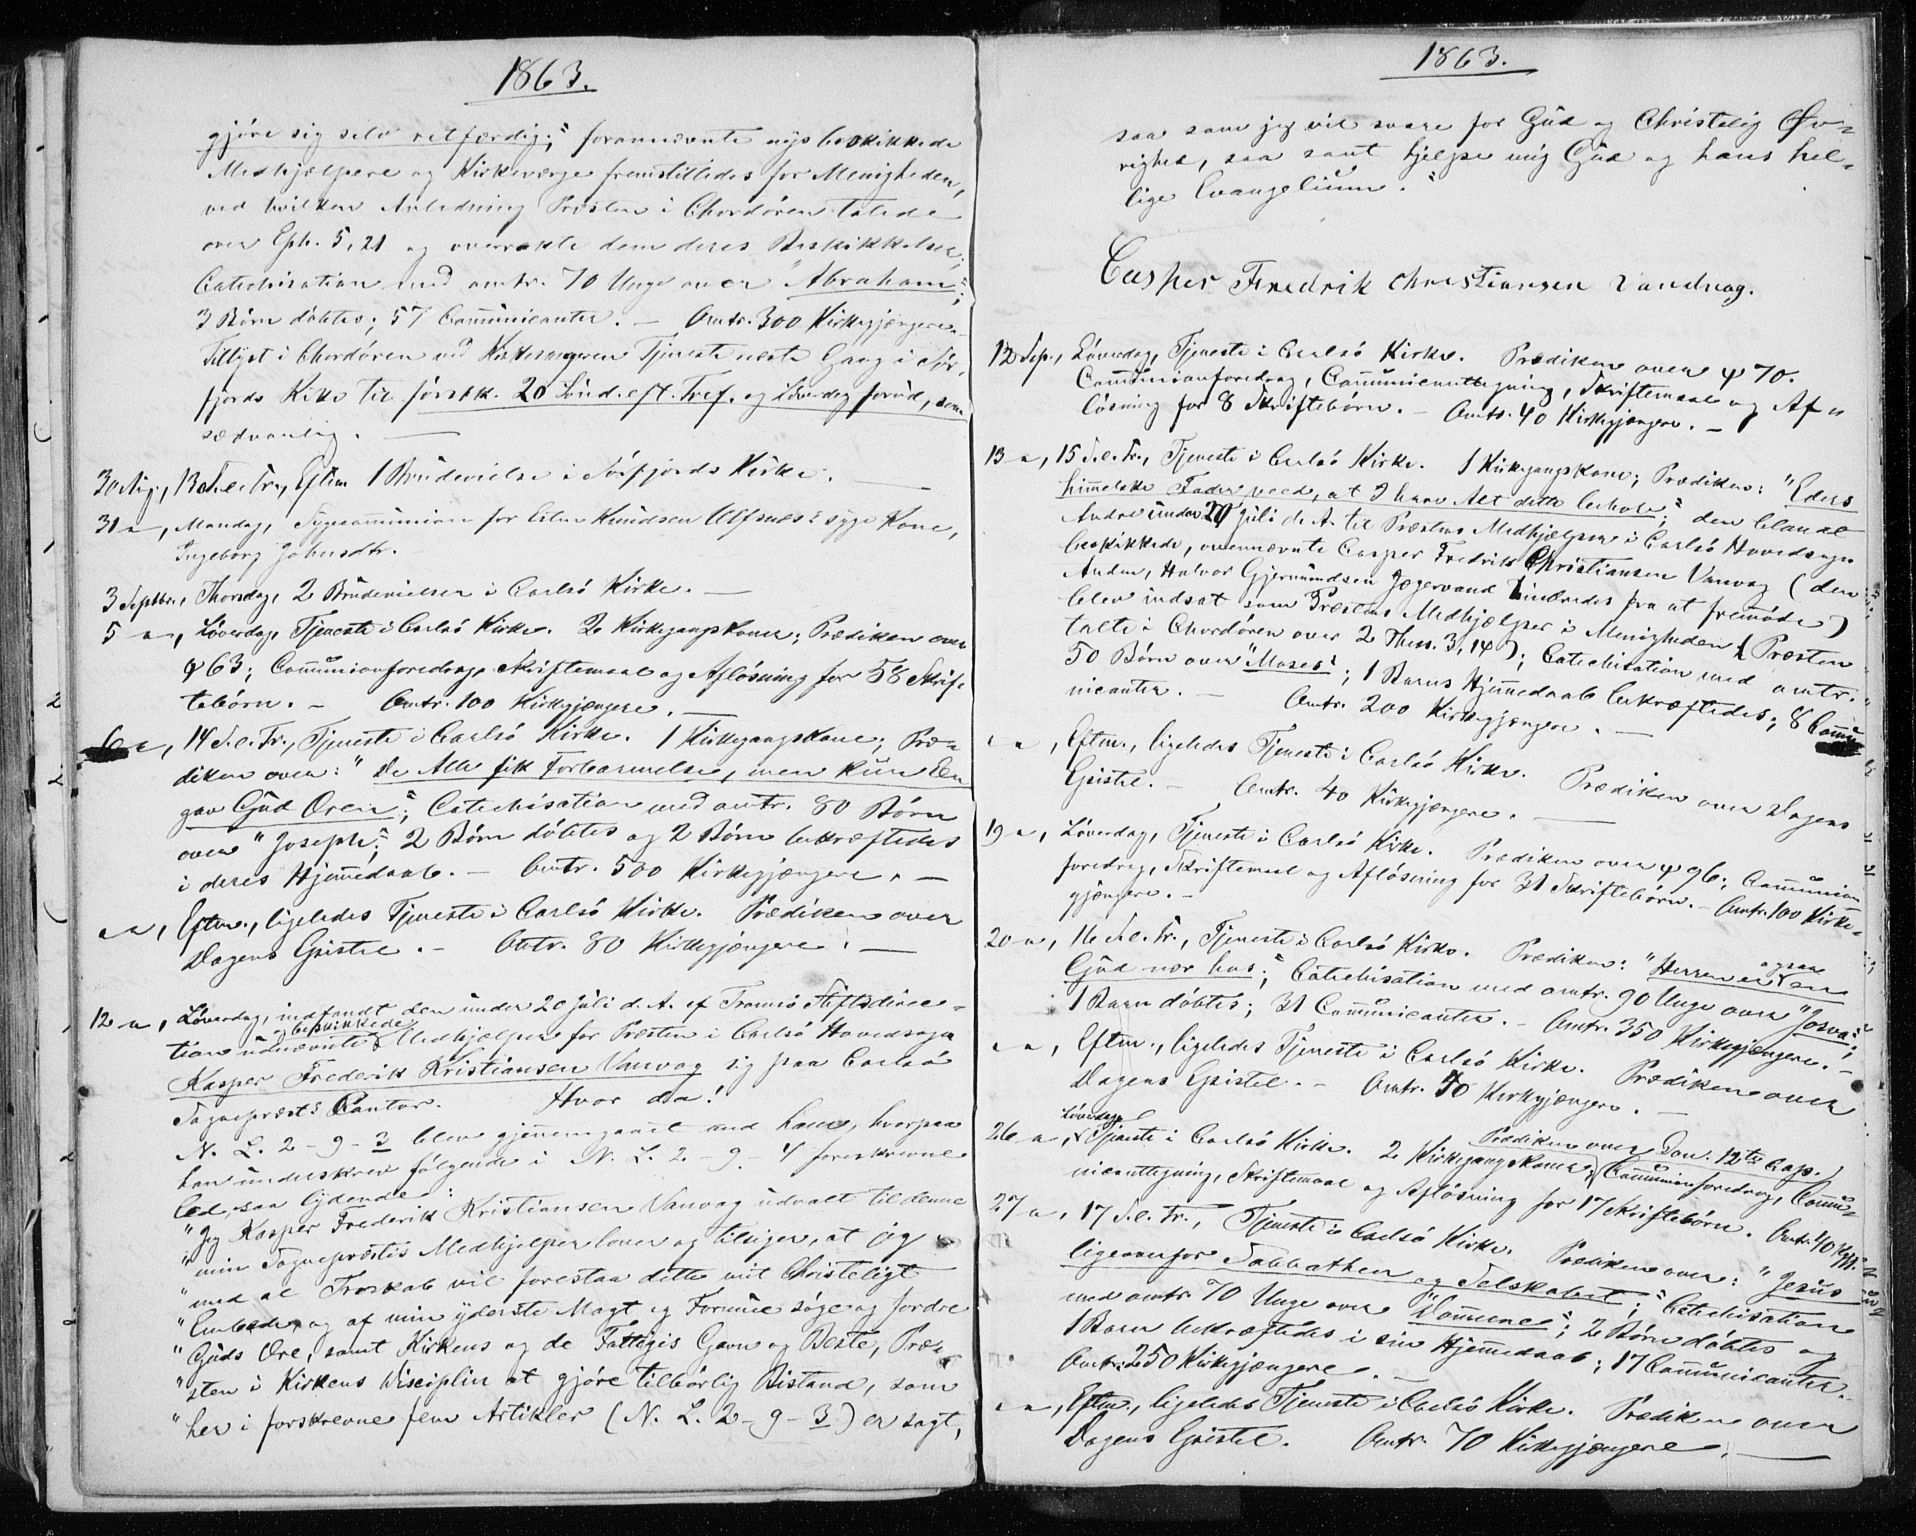 1863.
gjöre sig selv retfærdig;" forannævnte nys beskikkede
Medhjælpere og Kirkeværge fremstilledes for Menigheden,
ved hvilken Anledning Præsten i Chordören talede
over Eph. 5,21 og overrakte dem deres Beskikkelser;
Catechisation med omtr. 70 Unge over "Abraham";
3 Börn döbtes; 57 Communicanter. — Omtr. 300 Kirkegjængere.
Tillyst i Chordören ved Kirkesangeren Tjeneste næste Gang i Sör-
fjords Kirke til förstk. 20 Sönd. eft. Tref. og Löverdag forud, som
sædvanlig. —
30 Aug., 13 S. e. Tr., Eftm. 1 Brudevielse i Sörfjords Kirke. —
31 ", Mandag, Sygecommunion for Knudsen Ulfsnæs's syge Kone,
Ingeborg Johnsdtr.
3 Septbr., Thorsdag, 2 Brudevielser i Carlsö Kirke. —
5 ", Löverdag, Tjeneste i Carlsö Kirke. 2 Kirkegangskoner; Prædiken over
ψ 63; Communionforedrag, Skriftemaal og Aflösning for 58 Skrif-
tebörn. — Omtr. 100 Kirkegjængere. —
6 ", 14 S. e. Tr., Tjeneste i Carlsö Kirke. 1 Kirkegangskone; Præ-
diken over: "De Alle fik Forbarmelse, men kun Een
gav Gud Æren"; Catechisation med omtr. 80 Börn
over "Joseph"; 2 Börn döbtes og 2 Börn bekræftedes
i deres Hjemmedaab. — Omtr. 500 Kirkegjængere. —
" ", Eftm., ligeledes Tjeneste i Carlsö Kirke. Prædiken over
Dagens Epistel. — Omtr. 80 Kirkegjængere. —
12 ", Löverdag, indfandt den under 20 Juli d. A. af Tromsö Stiftsdirec-
tion udnævnte og beskikkede Medhjælper for Præsten i Carlsö Hovedsogn
Kasper Frederik Kristiansen Vanvag sig paa Carlsö
Sognepræsts Contor. Hvor da!
N. L. 2 - 9 - 3 blev gjennemgaaet med ham, hvorpaa
han underskrev fölgende i N. L. 2 - 9 - 4 foreskrevne
Eed, saa lydende:
"Jeg Kasper Frederik Kristiansen Vanvag udvalt til denne
"min Sognepræstis Medhjelper lover og tilsiger, at jeg
"med al Troskab vil forestaa dette mit Christeligt
"Embede, og af min yderste Magt og Formue söge og fordre
"Guds Ære, samt Kirkens og de Fattigis Gavn og Beste, Præ-
"sten i Kirkens Disciplin at gjöre tilbörlig Bistand, som
"her i forskrevne fem Artikler (N. L. 2 - 9 - 3) er sagt,
1863.
saa som jeg vil svare for Gud og Christelig Öv-
righed, saa sant hjelpe mig Gud og hans hel-
lige Evangelium."
Casper Fredrik christiansen Vandvag.
12 Sep., Löverdag, Tjeneste i Carlsö Kirke. Prædiken over ψ 70.
Communionforedrag, Communicanttegning, Skriftemaal og Af-
lösning for 8 Skriftebörn. — Omtr. 40 Kirkegjængere. —
13 ", 15 S. e. Tr., Tjeneste i Carlsö Kirke. 1 Kirkegangskone; Prædiken: "Eders
himmelske Fader veed, at I have Alt dette behov"; den blandt
Andre under 20 Juli d. A. til Præstens Medhjælper i Carlsö Hovedsogn
beskikkede, ovennævnte Casper Fredrik Christiansen Vanvag (den
Anden, Halvor Gjermundsen Jægervand hindredes fra at fremmöde)
blev indsat som Præstens Medhjælper i Menigheden (Præsten
talte i Chordören over 2 Thess. 3,14); Catechisation med omtr.
50 Börn over "Moses"; 1 Barns Hjemmedaab bekræftedes; 8 Commu-
nicanter. — Omtr. 200 Kirkegjængere. —
" ", Eftm., ligeledes Tjeneste i Carlsö Kirke. Prædiken over Dagens
Epistel. — Omtr. 40 Kirkegjængere. —
19 ", Löverdag, Tjeneste i Carlsö Kirke. Prædiken over ψ 96; Communion-
foredrag, Skriftemaal og Aflösning for 31 Skriftebörn. — Omtr. 100 Kirke-
gjængere. —
20 ", 16 S. e. Tr., Tjeneste i Carlsö Kirke. Prædiken: "Herren er ogsaa en
Gud nær hos"; Catechisation med omtr. 90 Unge over "Josva";
1 Barn döbtes; 31 Communicanter. — Omtr. 350 Kirkegjængere. —
" ", Eftm., ligeledes Tjeneste i Carlsö Kirke. Prædiken over
Dagens Epistel. — Omtr. 70 Kirkegjængere. —
26 ", Löverdag, Tjeneste i Carlsö Kirke. 2 Kirkegangskoner; Prædiken over Dan. 12te Cap.; Communionforedrag, Commu-
nicanttegning, Skriftemaal og Aflösning for 17 Skriftebörn. Omtr. 40 Kgjg.
27 ", 17 S. e. Tr., Tjeneste i Carlsö Kirke. Prædiken over: "Jesus
ligeoverfor Sabbathen og Selskabet"; Catechisation
med omtr. 70 Unge over "Dommerne"; 2 Börn döbtes og
1 Barn bekræftedes i sin Hjemmedaab; 17 Communicanter. —
Omtr. 250 Kirkegjængere. —
" ", Eftm., ligeledes Tjeneste i Carlsö Kirke. Prædiken over
Dagens Epistel. Omtr. 70 Kirkegjængere. —